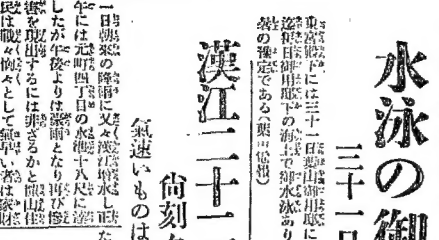 水泳の御
三十一日
東宮殿下には三十一日葉山御用邸に
迄毎日御用邸下の海上で御水泳あり
の豫定である（葉山電報）
漢江二十一
尙刻々
氣速いものは
一日朝來の降雨に又々漢江增水し正
午には元町四丁目の水港十八尺に達
したが午後よりは豪雨となり再び慘
害を現出するには非ざるかと龍山住
民は戰々恟々として氣早い者は家財